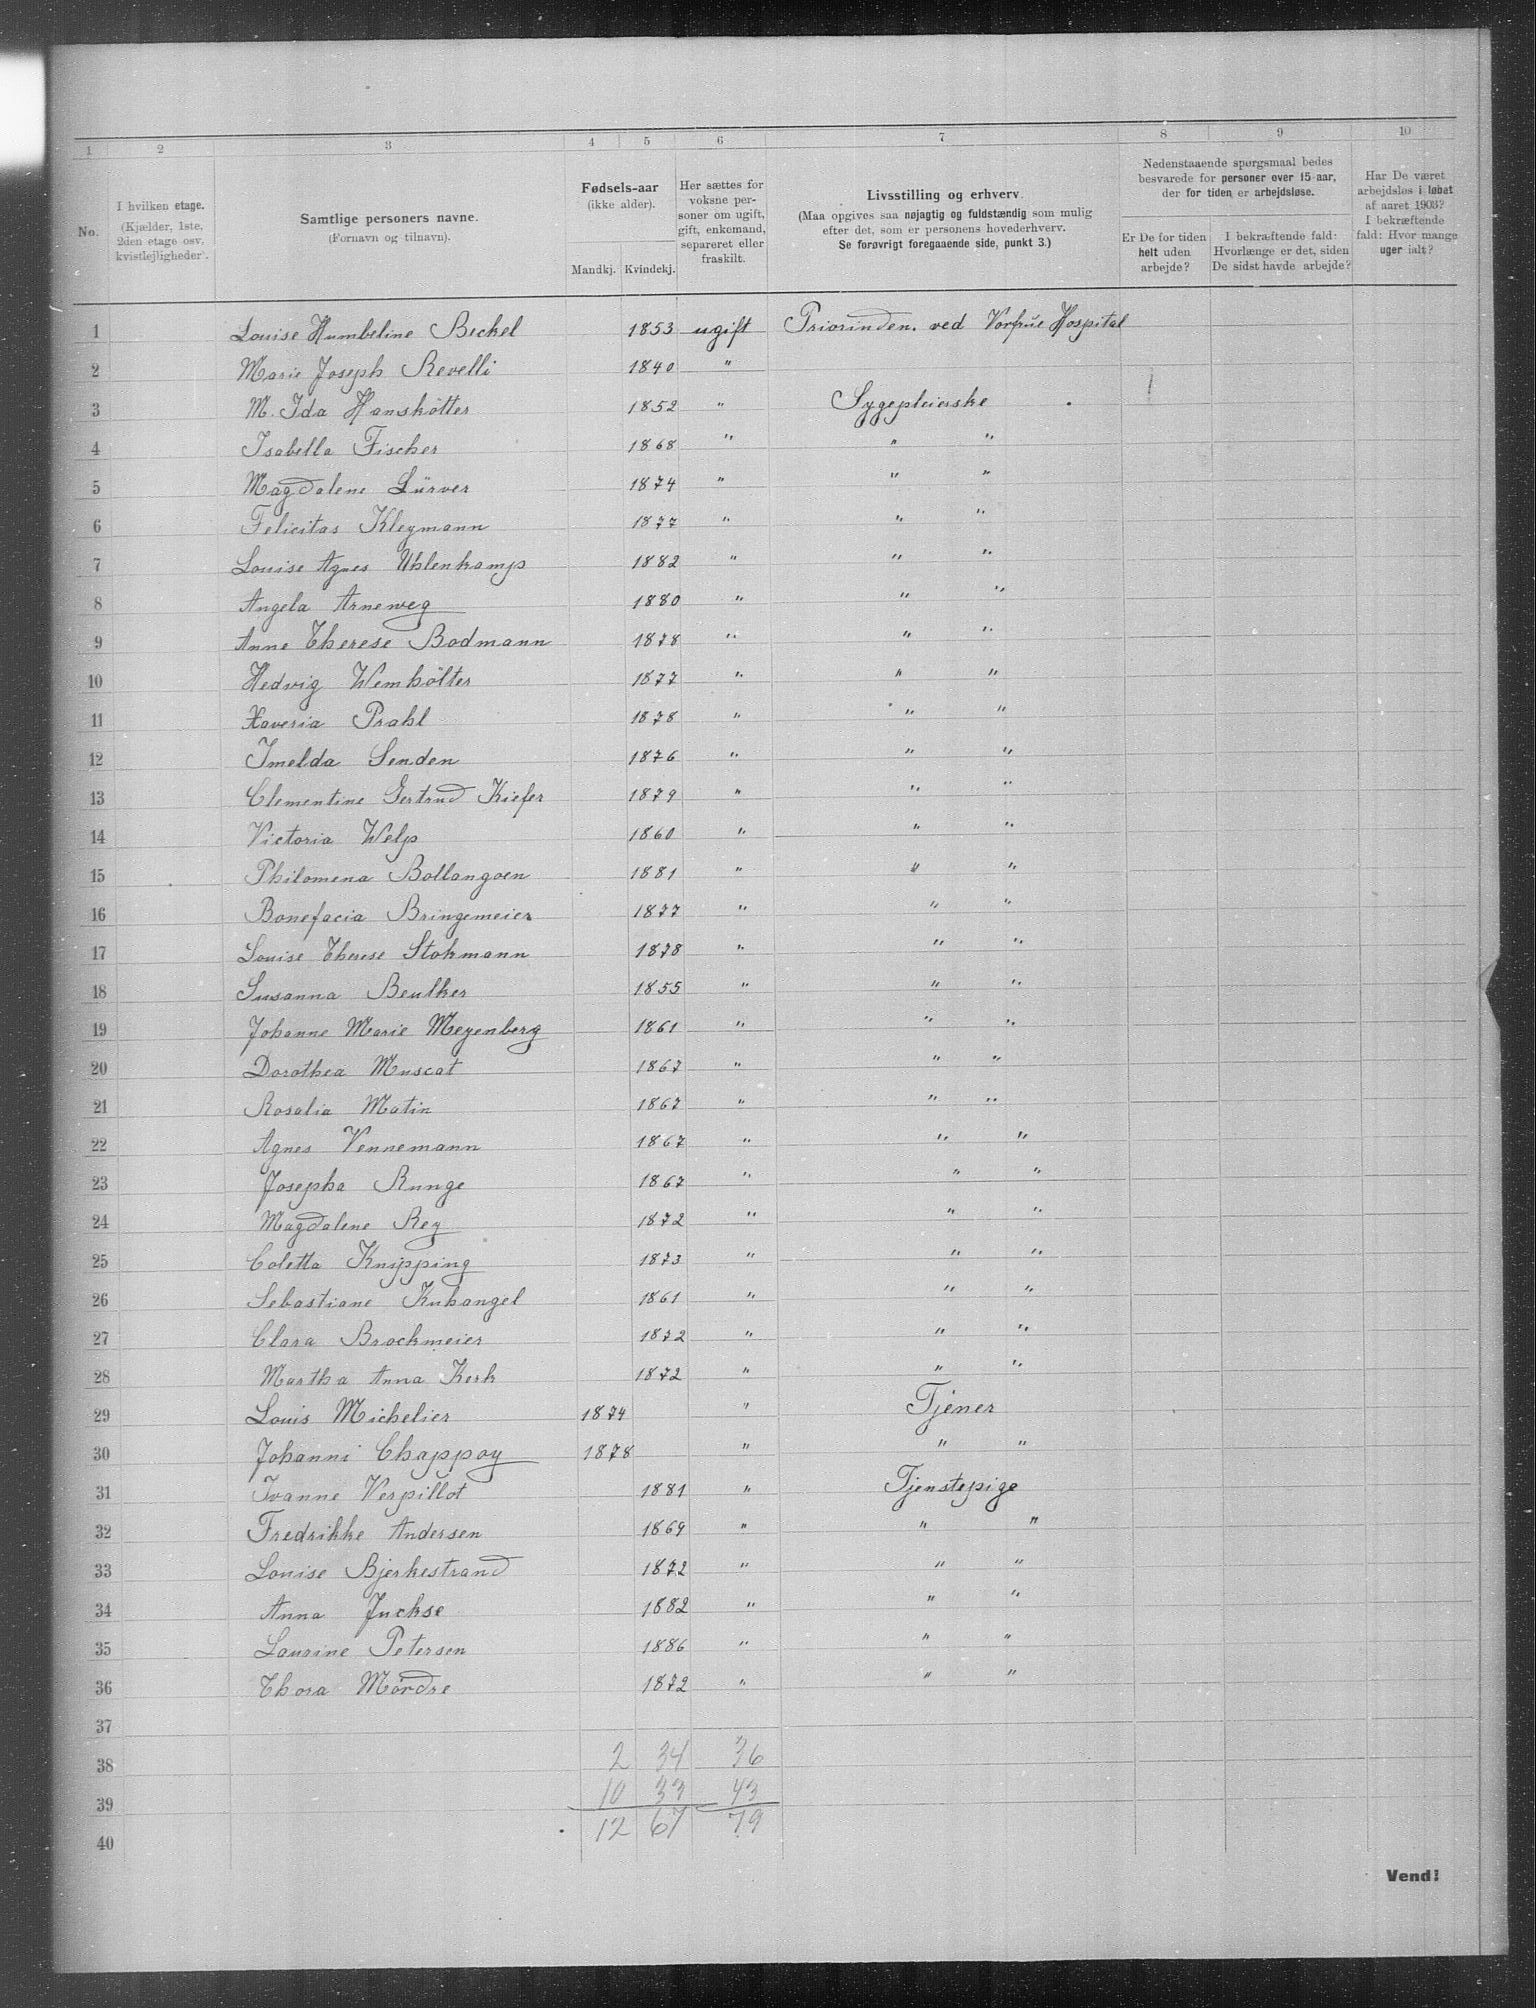 1 2 3 4 5 6 7 8 9 10
No.
I hvilken etage.
(Kjælder, 1ste,
2den etage osv.
kvistlejligheder).
Samtlige personers navne.
(Fornavn og tilnavn).
Fødsels-aar
(ikke alder).
Mandkj. Kvindekj.
Her sættes for
voksne per-
soner om ugift,
gift, enkemand,
separeret eller
fraskilt.
Livsstilling og erhverv.
(Maa opgives saa nøjagtig og fuldstændig som mulig
efter det, som er personens hovederhverv.
Se forøvrigt foregaaende side, punkt 3.)
Nedenstaaende spørgsmaal bedes
besvarede for personer over 15 aar,
der for tiden er arbejdsløse.
Er De for tiden
helt uden
arbejde?
I bekræftende fald:
Hvorlænge er det, siden
De sidst havde arbejde?
Har De været
arbejdsløs i løbet
af aaret 1903?
I bekræftende
fald: Hvor mange
uger ialt?
1 Louise Humbeline Beckel 1853 ugift Priorinden. ved Vorfrue Hospital
2 Marie Joseph Revelli 1840 "
3 M. Ida Hanskötter 1852 " Sygepleierske
4 Isabella Fischer 1868 " " "
5 Magdalene Lürver 1874 " " "
6 Felicitas Kleymann 1877 " " "
7 Louise Agnes Uhlenkamp 1882 " " "
8 Angela Arneweg 1880 " " "
9 Anne Therese Bodmann 1878 " " "
10 Hedvig Wemhölter 1877 " " "
11 Xaveria Prahl 1878 " " "
12 Imelda Senden 1876 " " "
13 Clementine Gertrud Kiefer 1879 " " "
14 Victoria Welp 1860 " " "
15 Philomena Bollangoen 1881 " " "
16 Bonefacia Bringemeier 1877 " " "
17 Louise Therese Stokmann 1878 " " "
18 Susanna Beulker 1855 " " "
19 Johanne Marie Meyenberg 1861 " " "
20 Dorothea Muscat 1867 " " "
21 Rosalia Matin 1867 " " "
22 Agnes Vennemann 1867 " " "
23 Josepha Runge 1867 " " "
24 Magdalene Rey 1872 " " "
25 Coletta Knipping 1873 " " "
26 Sebastiane Kuhangel 1861 " " "
27 Clara Brockmeier 1872 " " "
28 Martha Anna Kerk 1872 " " "
29 Louis Michelier 1874 " Tjener
30 Johanni Chappoy 1878 " " "
31 Ivanne Verpillot 1881 " Tjenstepige
32 Fredrikke Andersen 1869 " " "
33 Louise Bjerkestrand 1872 " " "
34 Anna Juckse 1882 " " "
35 Laurine Petersen 1886 " " "
36 Thora Mördre 1872 " " "
37
38 2 34 36
39 10 33 43
40 12 67 79
Vend!